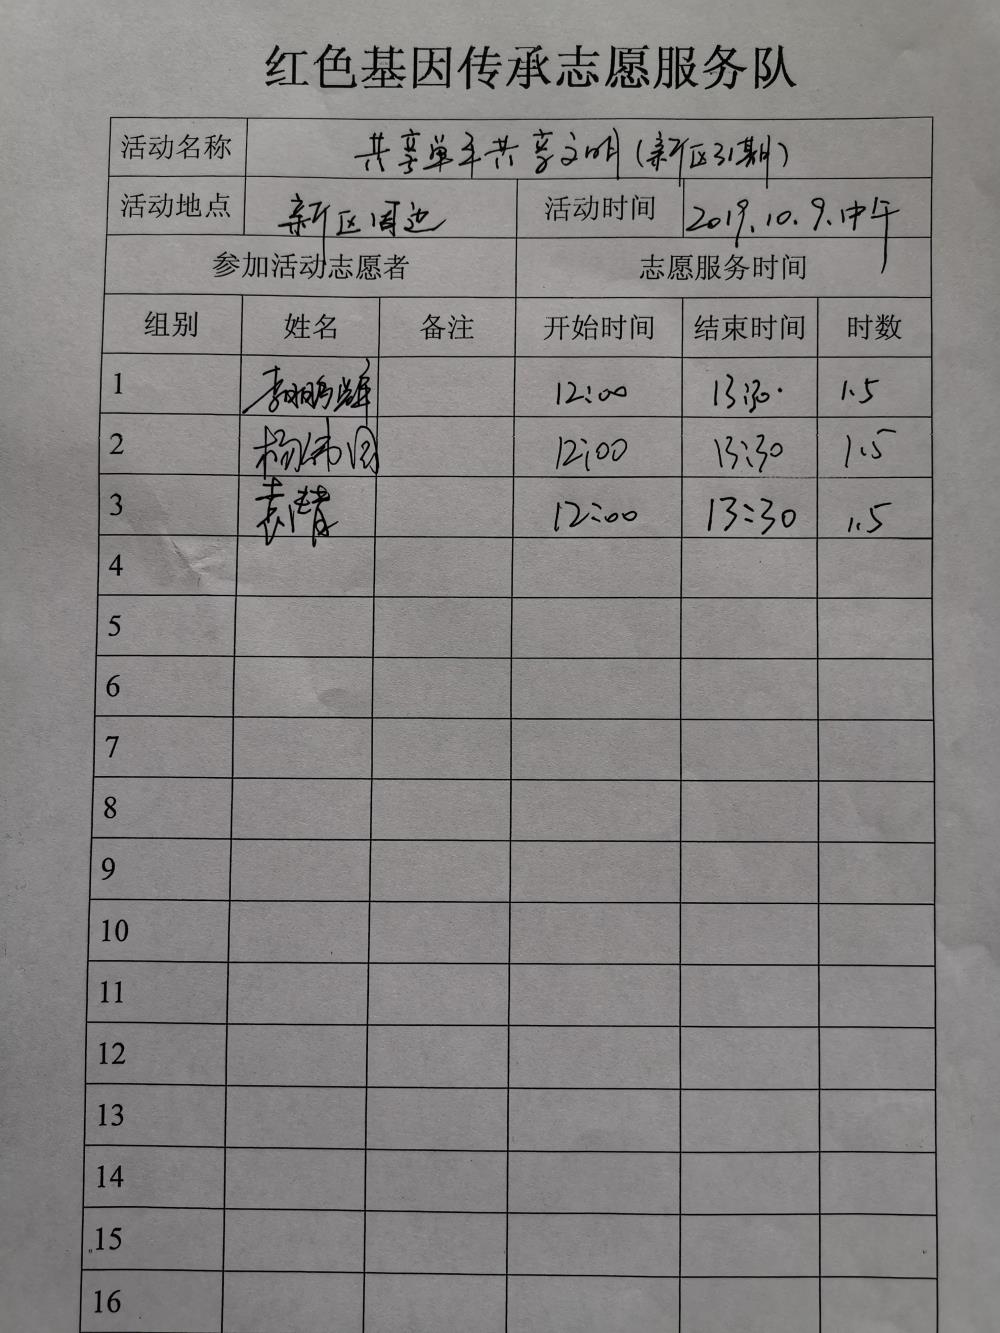 红色基因传承志愿服务队
活动名称 共享单车共享文明(新区31期)
活动地点 新区周边 活动时间 2019.10.9.中午
参加活动志愿者 志愿服务时间
组别 姓名 备注 开始时间 结束时间 时数
1 李鹏 12:00 13:30 1.5
2 杨伟国 12:00 13:30 1.5
3 袁清 12:00 13:30 1.5
4
5
6
7
8
9
10
11
12
13
14
15
16